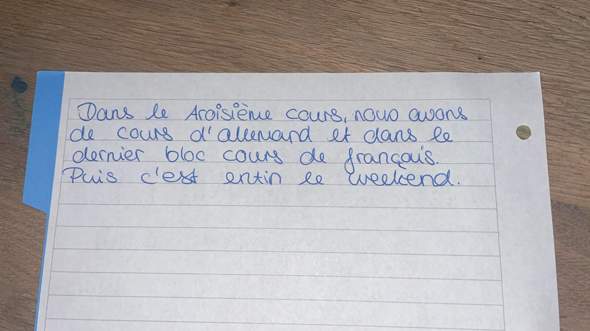 Dans le troisième cours, nous avons
de cours d'allemand et dans le
dernier bloc cours de français.
Puis c'est enfin le weekend.